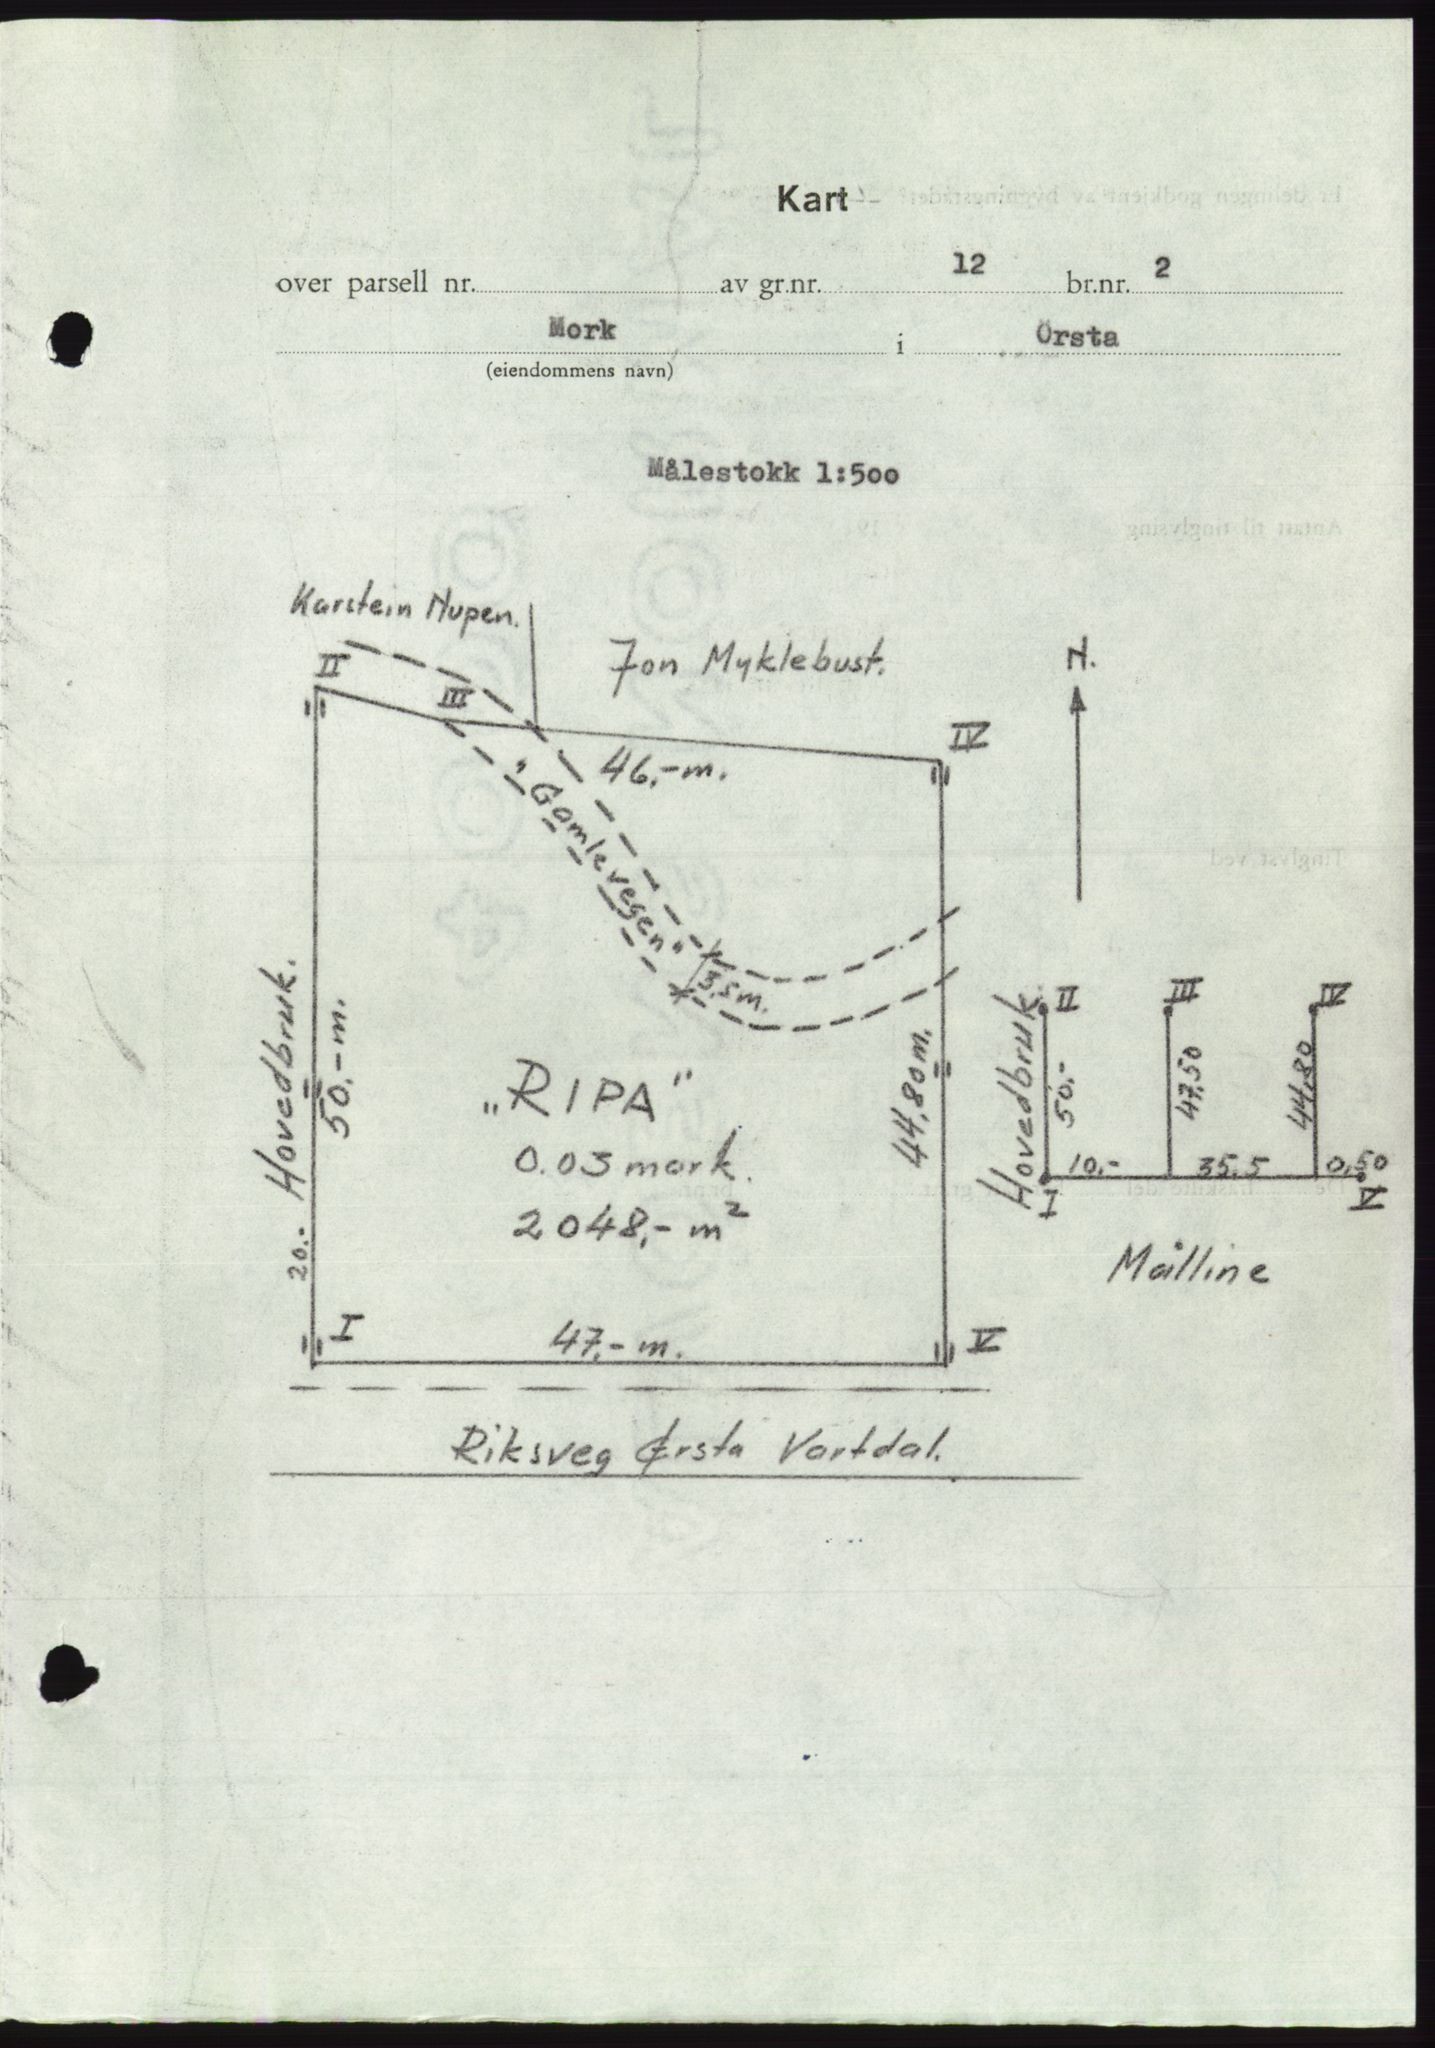 Kart
over parsell nr. av gr.nr. 12 br.nr. 2
Mork i Örsta
(eiendommens navn)
Målestokk 1:500
Karstein Nupen.
Jon Myklebust.
N.
II
III
IV
46,- m.
"Gamlevegen"
3,5 m.
Hovedbruk.
50,- m.
20.-
44,80 m.
„RIPA"
0.03 mark.
2048,- m²
I
47,- m.
V
Riksveg Ørsta Vartdal.
Hovedbruk.
II
III
IV
50,-
47,50
44,80
10,-
35,5
0,50
I
V
Målline